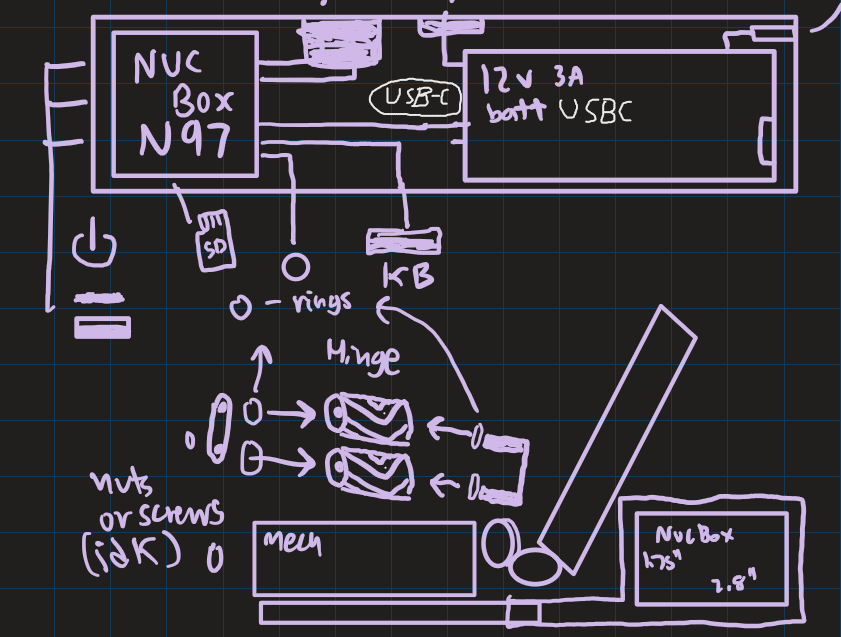 NUC
Box
N97
USB-C
12v 3A
batt USBC
SD
KB
O - rings
Hinge
nuts
or screws
(idk)
Mech
NucBox
1.75"
2.8"